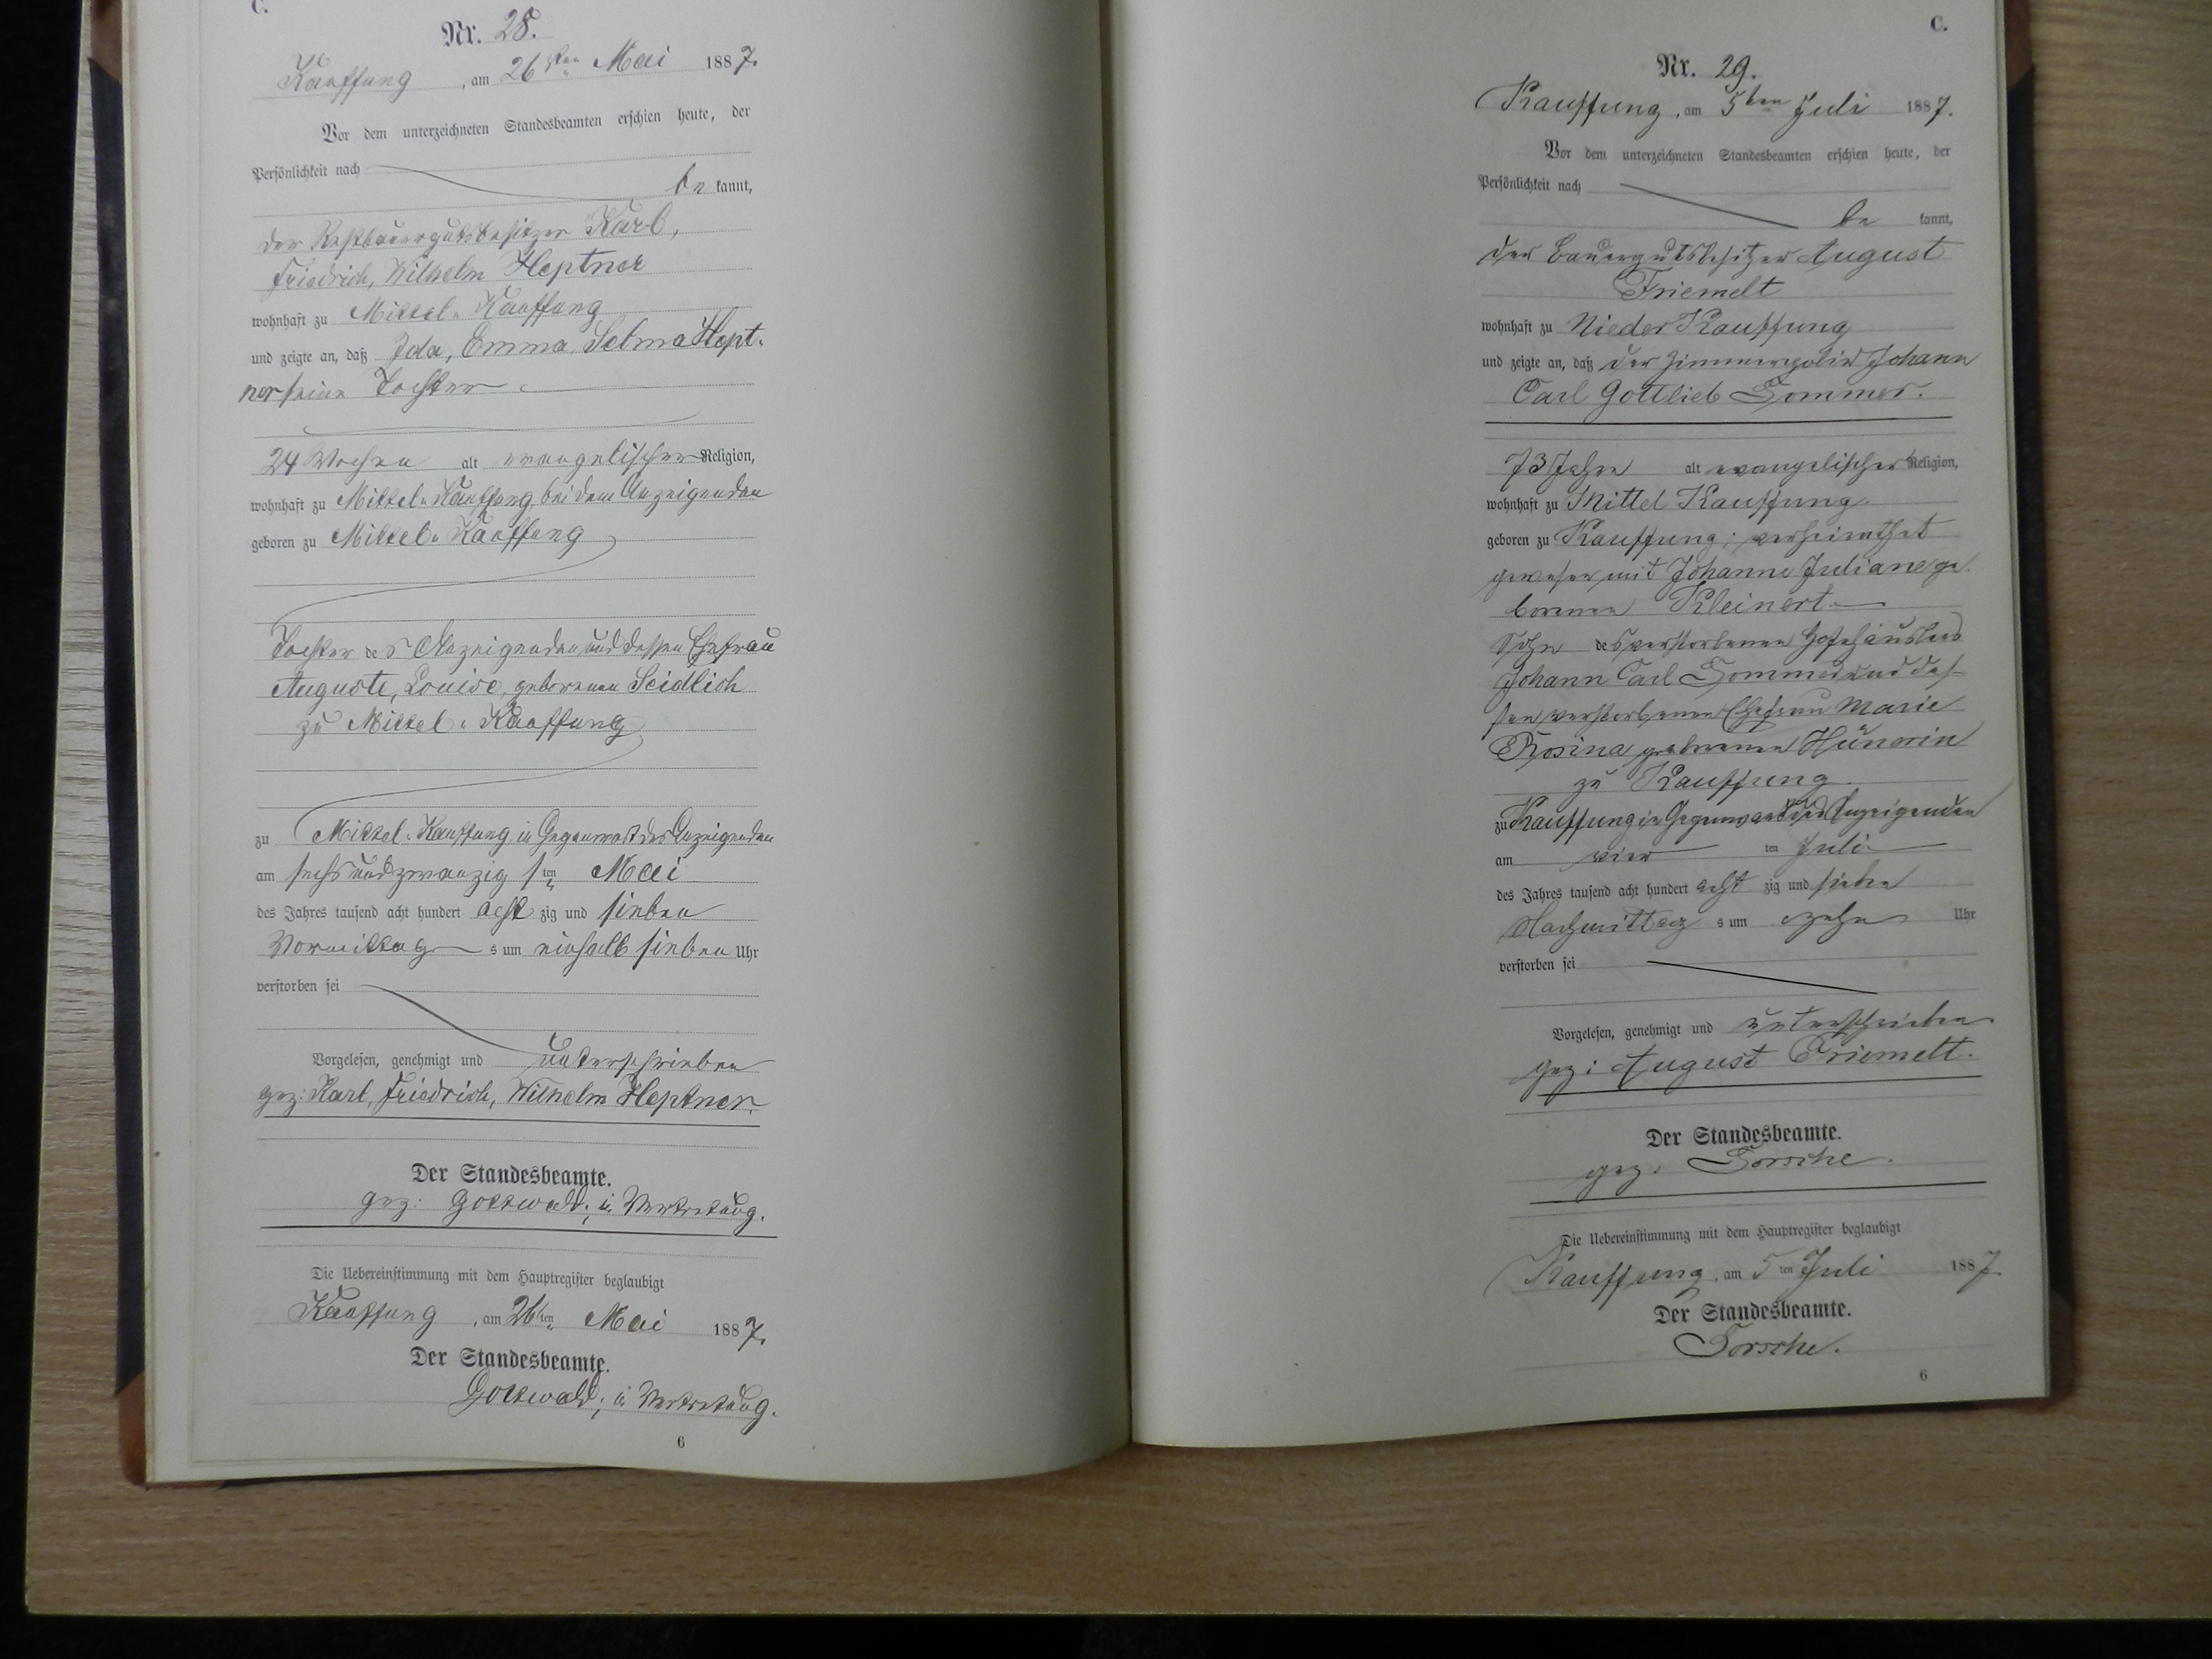 C.
Nr. 28.
Kauffung, am 26sten Mai 1887.
Vor dem unterzeichneten Standesbeamten erschien heute, der
Persönlichkeit nach
be kannt,
der Restbauergutsbesitzer Karl,
Friedrich, Wilhelm Heptner
wohnhaft zu Mittel-Kauffung
und zeigte an, daß Ida, Emma, Selma Hept-
ner seine Tochter
24 Wochen alt evangelischer Religion,
wohnhaft zu Mittel-Kauffung, bei dem Anzeigenden
geboren zu Mittel-Kauffung
Tochter des Anzeigenden und dessen Ehefrau
Auguste, Louise, geborenen Seidlich
zu Mittel-Kauffung
zu Mittel-Kauffung in Gegenwart des Anzeigenden
am sechs und zwanzigsten Mai
des Jahres tausend acht hundert acht zig und sieben
Vormittags um einhalb sieben Uhr
verstorben sei
Vorgelesen, genehmigt und unterschrieben
gez: Karl, Friedrich, Wilhelm Heptner.
Der Standesbeamte.
gez: Gottwald; in Vertretung.
Die Uebereinstimmung mit dem Hauptregister beglaubigt
Kauffung, am 26ten Mai 1887.
Der Standesbeamte.
Gottwald; in Vertretung.
6
C.
Nr. 29.
Kauffung, am 5ten Juli 1887.
Vor dem unterzeichneten Standesbeamten erschien heute, der
Persönlichkeit nach
be kannt,
der Bauergutsbesitzer August
Friemelt
wohnhaft zu Nieder Kauffung
und zeigte an, daß der Zimmerpolier Johann
Carl Gottlieb Sommer.
73 Jahre alt evangelischer Religion,
wohnhaft zu Mittel Kauffung.
geboren zu Kauffung; verheirathet
gewesen mit Johanne Juliane ge-
borenen Kleinert
Sohn des verstorbenen Hofehäuslers
Johann Carl Sommer und des-
sen verstorbenen Ehefrau Marie
Rosina geborenen Hünerin
zu Kauffung
zu Kauffung in Gegenwart des Anzeigenden
am vier ten Juli
des Jahres tausend acht hundert acht zig und sieben
Nachmittag s um zehn Uhr
verstorben sei
Vorgelesen, genehmigt und unterschrieben
gez: August Friemelt.
Der Standesbeamte.
gez: Sorsche.
Die Uebereinstimmung mit dem Hauptregister beglaubigt
Kauffung, am 5ten Juli 1887.
Der Standesbeamte.
Sorsche.
6